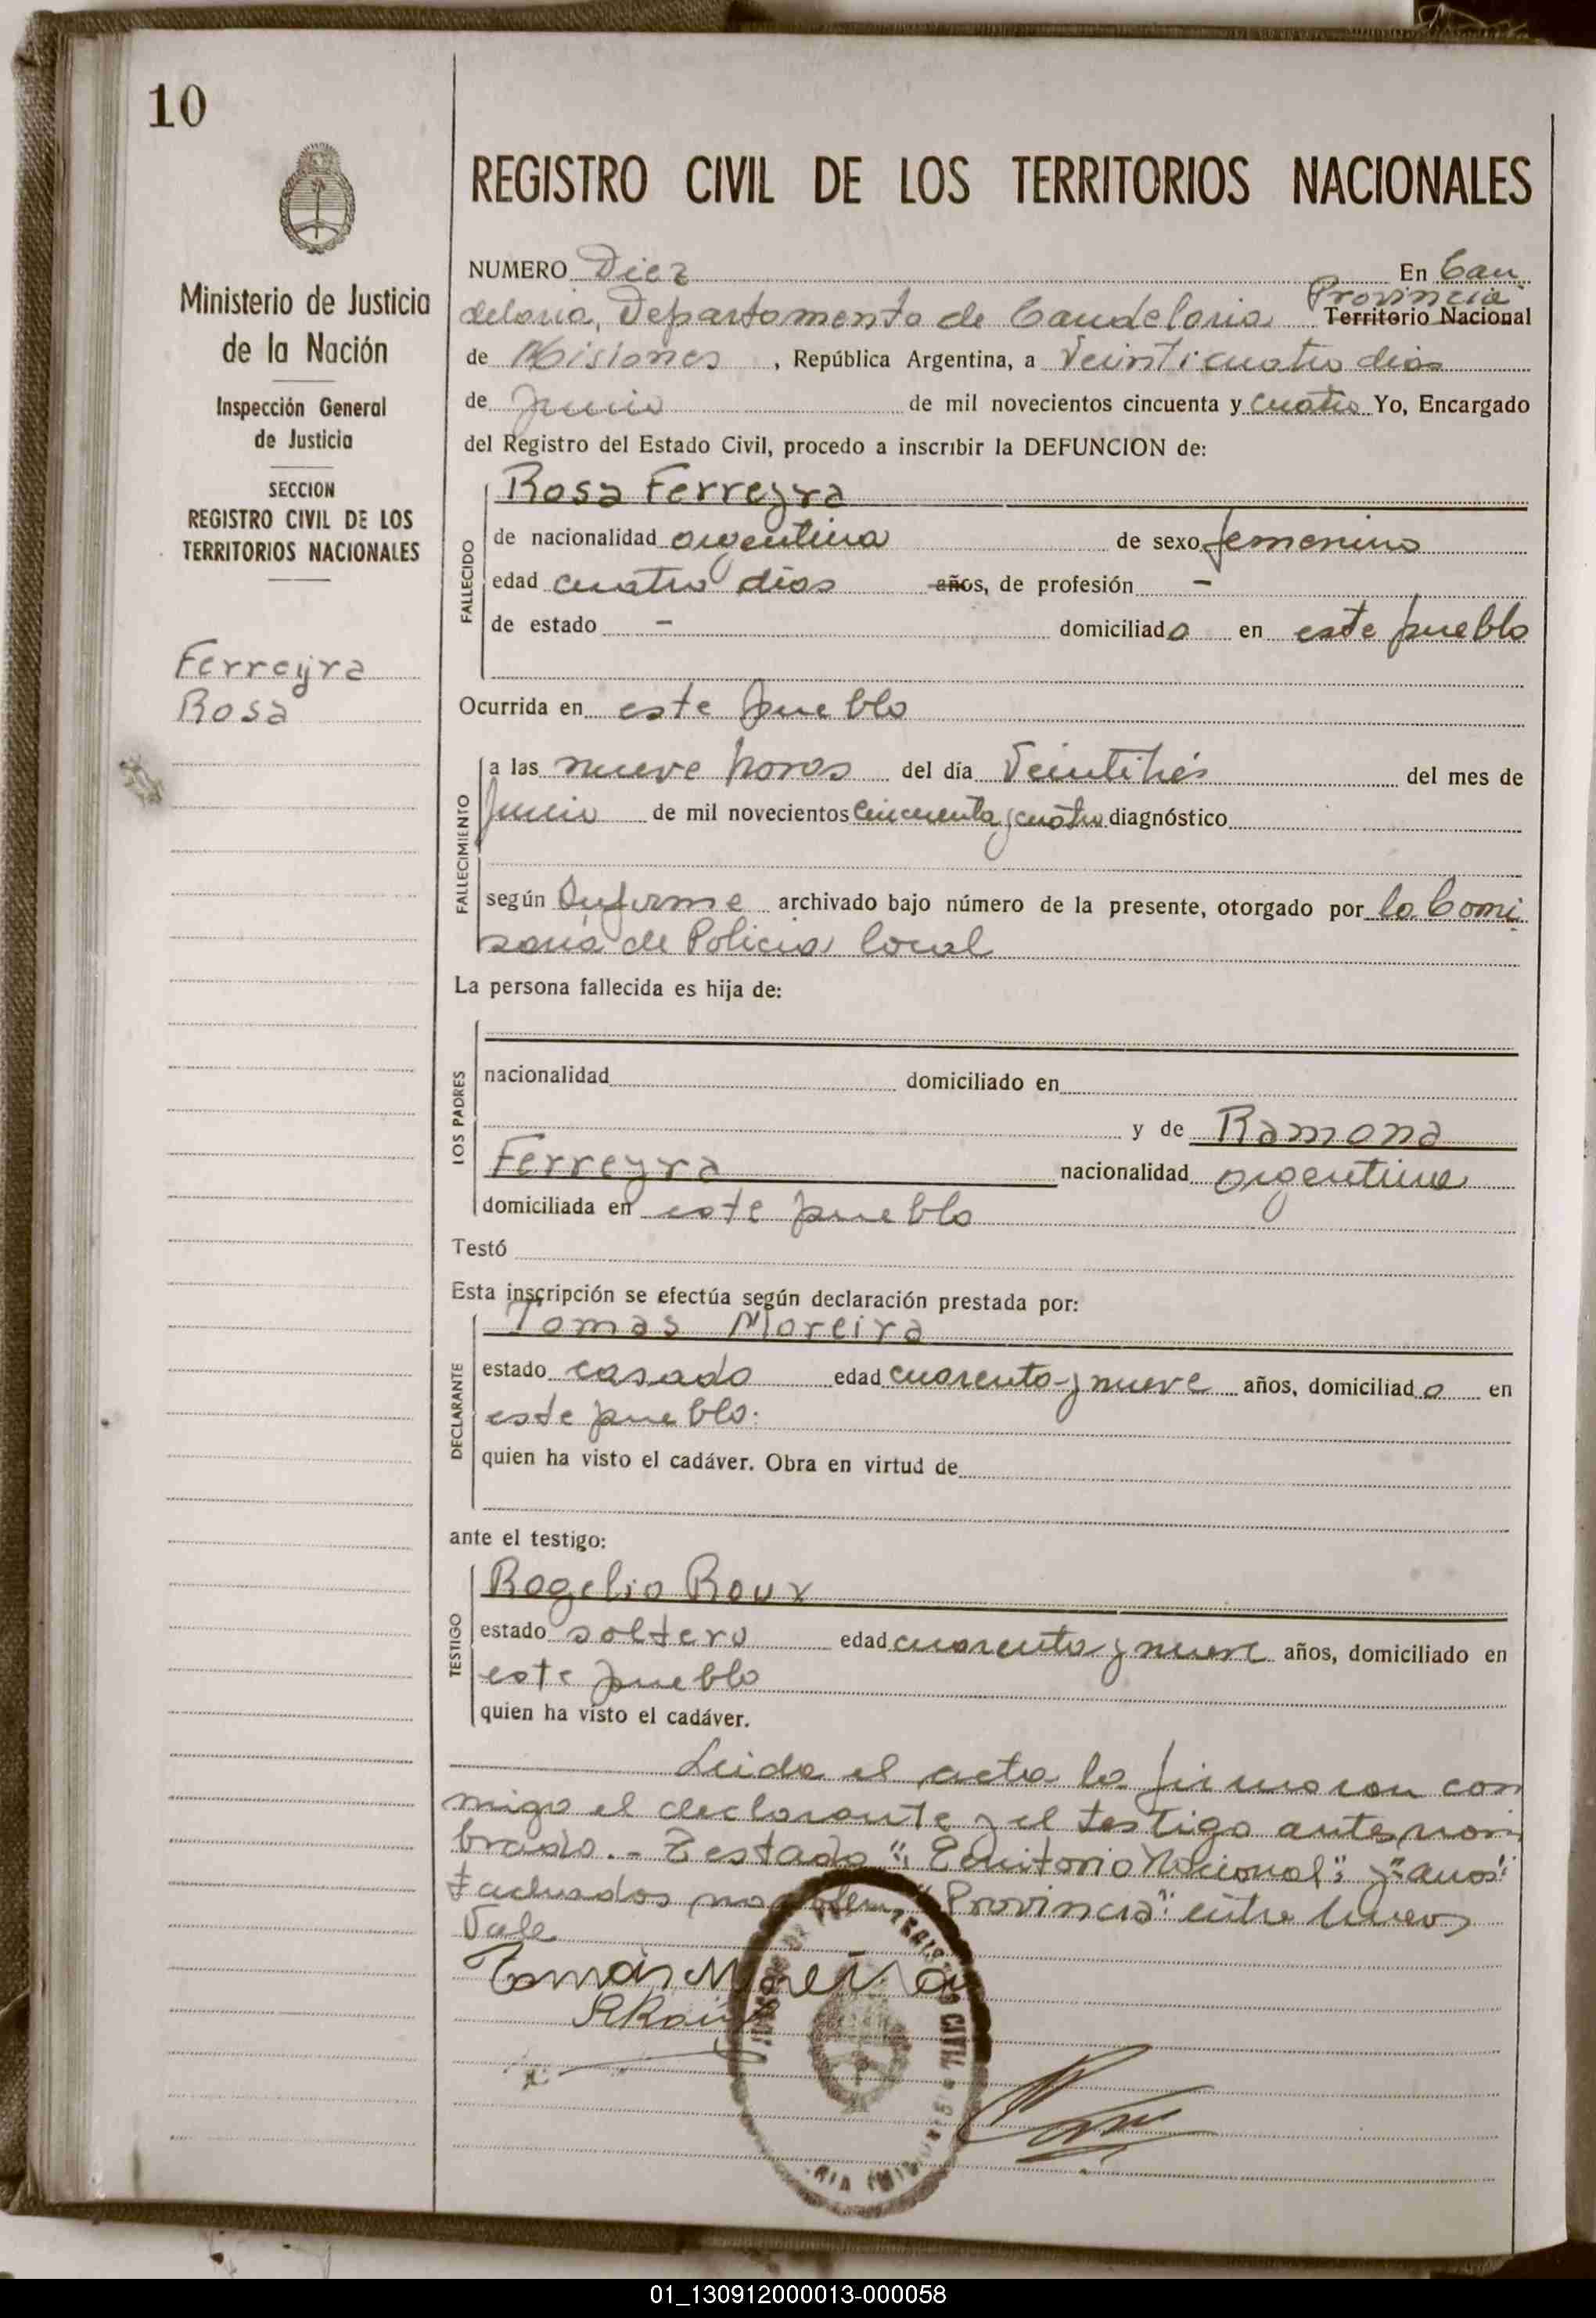 10
Ministerio de Justicia
de la Nación
Inspección General
de Justicia
SECCION
REGISTRO CIVIL DE LOS
TERRITORIOS NACIONALES
Ferreyra
Rosa
REGISTRO CIVIL DE LOS TERRITORIOS NACIONALES
NUMERO Diez En Can
Provincia
delaria, Departamento de Candelaria Territorio Nacional
de Misiones, República Argentina, a Veinticuatro dias
de Junio de mil novecientos cincuenta y cuatro Yo, Encargado
del Registro del Estado Civil, procedo a inscribir la DEFUNCION de:
Rosa Ferreyra
FALLECIDO
de nacionalidad argentina de sexo femenino
edad cuatro dias años, de profesión -
de estado - domiciliado en este pueblo
Ocurrida en este pueblo
FALLECIMIENTO
a las nueve horas del día Veintitrés del mes de
Junio de mil novecientos cincuenta y cuatro diagnóstico
según Informe archivado bajo número de la presente, otorgado por la Comi
saria de Policia local
La persona fallecida es hija de:
LOS PADRES
nacionalidad domiciliado en
y de Ramona
Ferreyra nacionalidad argentina
domiciliada en este pueblo
Testó
Esta inscripción se efectúa según declaración prestada por:
Tomas Moreira
DECLARANTE
estado casado edad cuarenta y nueve años, domiciliado en
este pueblo.
quien ha visto el cadáver. Obra en virtud de
ante el testigo:
Rogelio Roux
TESTIGO
estado soltero edad cuarenta y nueve años, domiciliado en
este pueblo
quien ha visto el cadáver.
Leida el acta la firmaron con
migo el declarante y el testigo antes nom
brado.- Testado "Territorio Nacional" y "años"
tachados no valen "Provincia" entre lineas
Vale
Tomás Moreira
RRoux
CIVIL
01_130912000013-000058